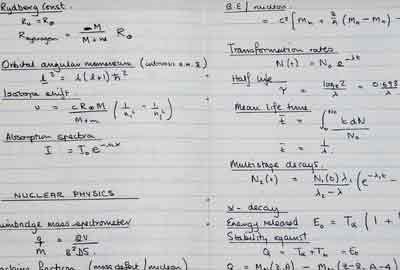 Rydberg Const.
R∞ = R∞
R_Hydrogen = M / (M+m) R∞
Orbital angular momentum (intrinsic a.m. )
l² = l(l+1)ħ²
Isotope shift.
ν = cR∞M / (M+m) (1/n₁² - 1/n₂²)
Absorption spectra
I = I₀e
NUCLEAR PHYSICS
mass spectrometer
q/M = 2V / B²D
fraction (mass defect / nucleon)
B.E / nucleon
= c² [Mn + (Mn - Mn) -
Transformation rates
N(t) = N₀ e^-λt
Half life
τ = log_e 2 / λ = 0.693 / λ
Mean life time
t̄ = ∫ t dN / N₀
t̄ = 1/λ
Multistage decays.
N₂(t) = N₁(0)λ₁ / (λ₂ - λ) (e^-λ₁t -
α - decay
Energy released E₀ = Tα (1 +
Stability against
Q = Tα + Tb = E₀
Q = (Z,A) - (Z-2, A-4)